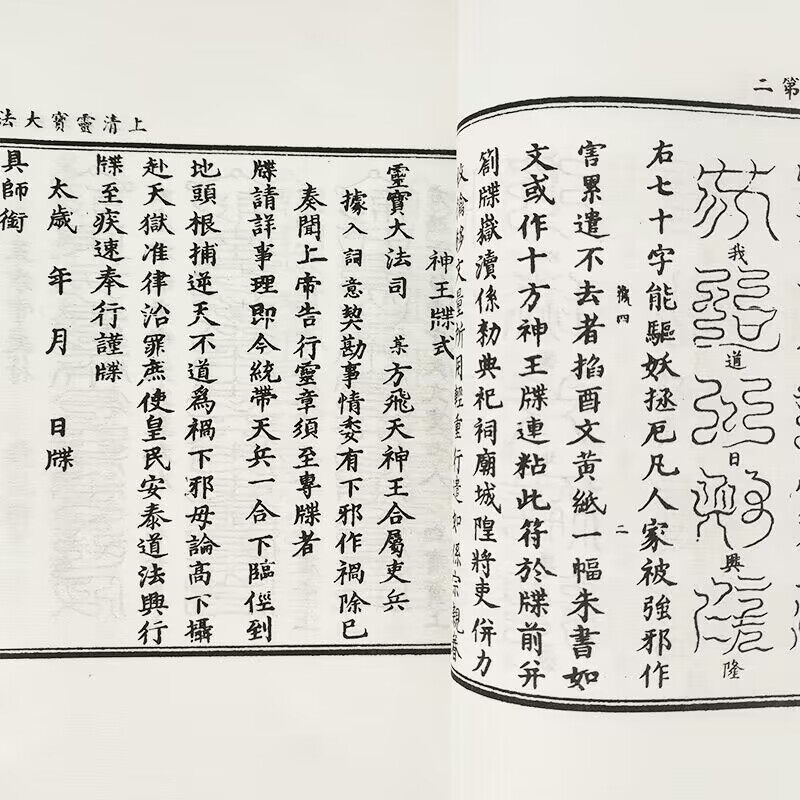 第二
我道日興隆
右七十字能驅妖拯厄凡人家被強邪作
四 二
害累遣不去者搯酉文黃紙一幅朱書如
文或作十方神王牒連粘此符於牒前并
劄牒嶽瀆係勑典祀祠廟城隍將吏併力
移文量所用輕重行遣如係宗親眷
上清靈寶大法
神王牒式
靈寶大法司 某方飛天神王合屬吏兵
據入詞意契勘事情委有下邪作禍除已
奏聞上帝告行靈章須至專牒者
牒請詳事理即今統帶天兵一合下臨徑到
地頭根捕逆天不道為禍下邪毋論高下攝
赴天獄准律治罪庶使皇民安泰道法興行
牒至疾速奉行謹牒
太歲 年 月 日牒
具師銜